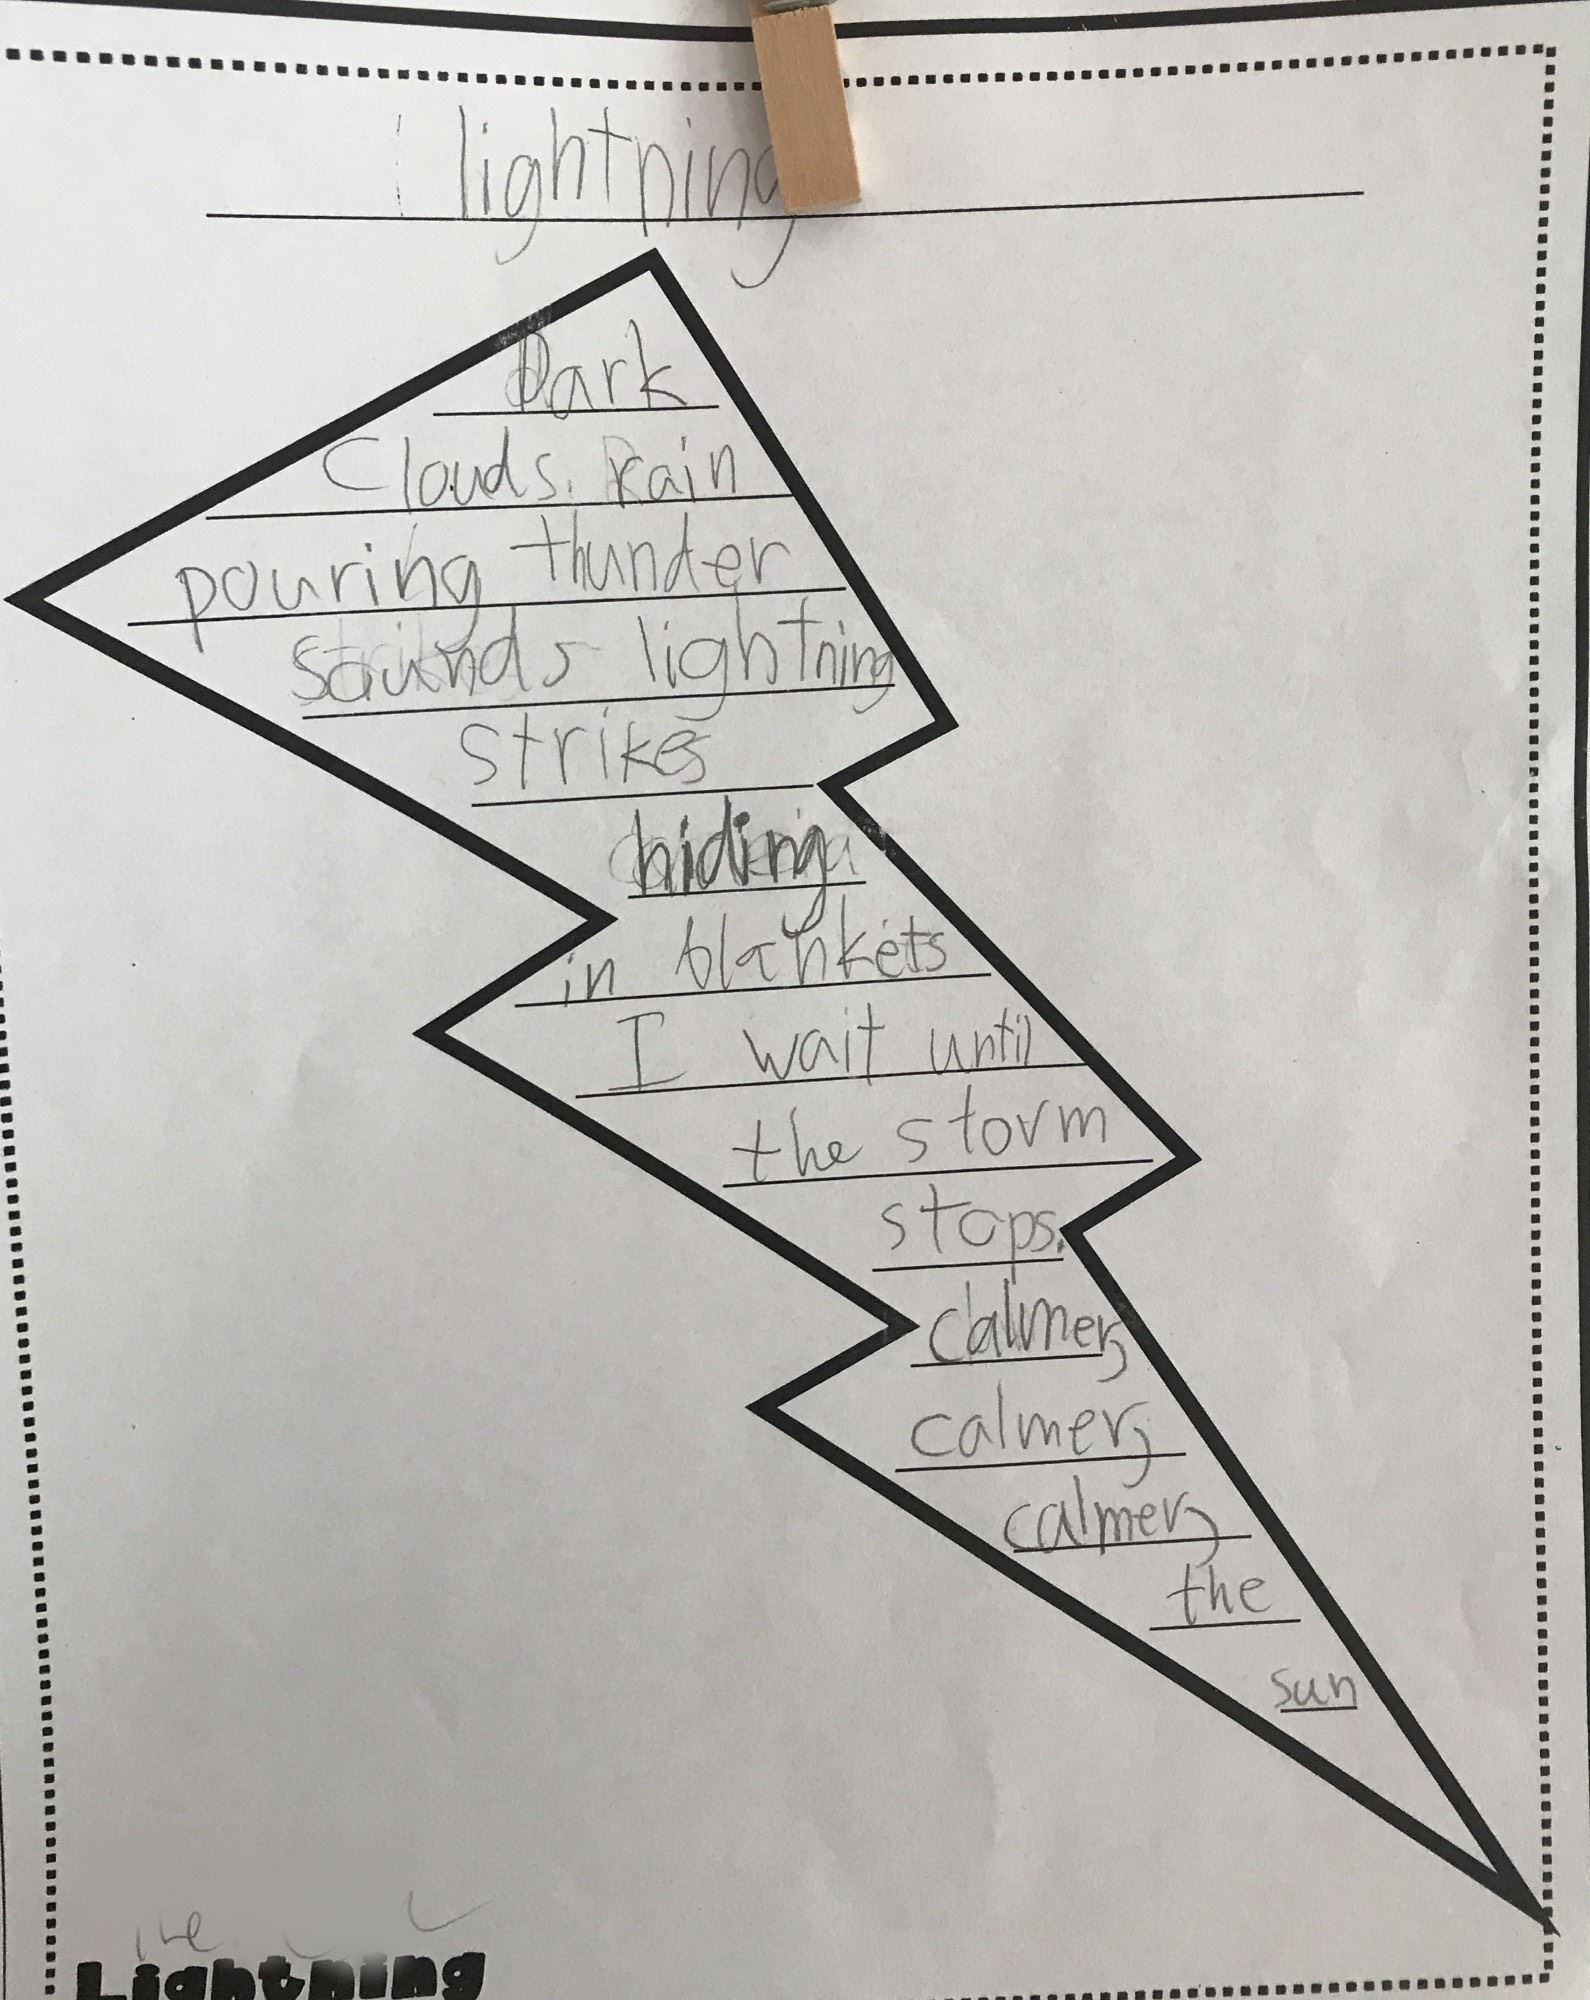 lightning
Dark
Clouds. Rain
pouring thunder
sounds lightning
strikes
hiding
in blankets
I wait until
the storm
stops.
calmer,
calmer,
calmer,
the
sun
Lightning